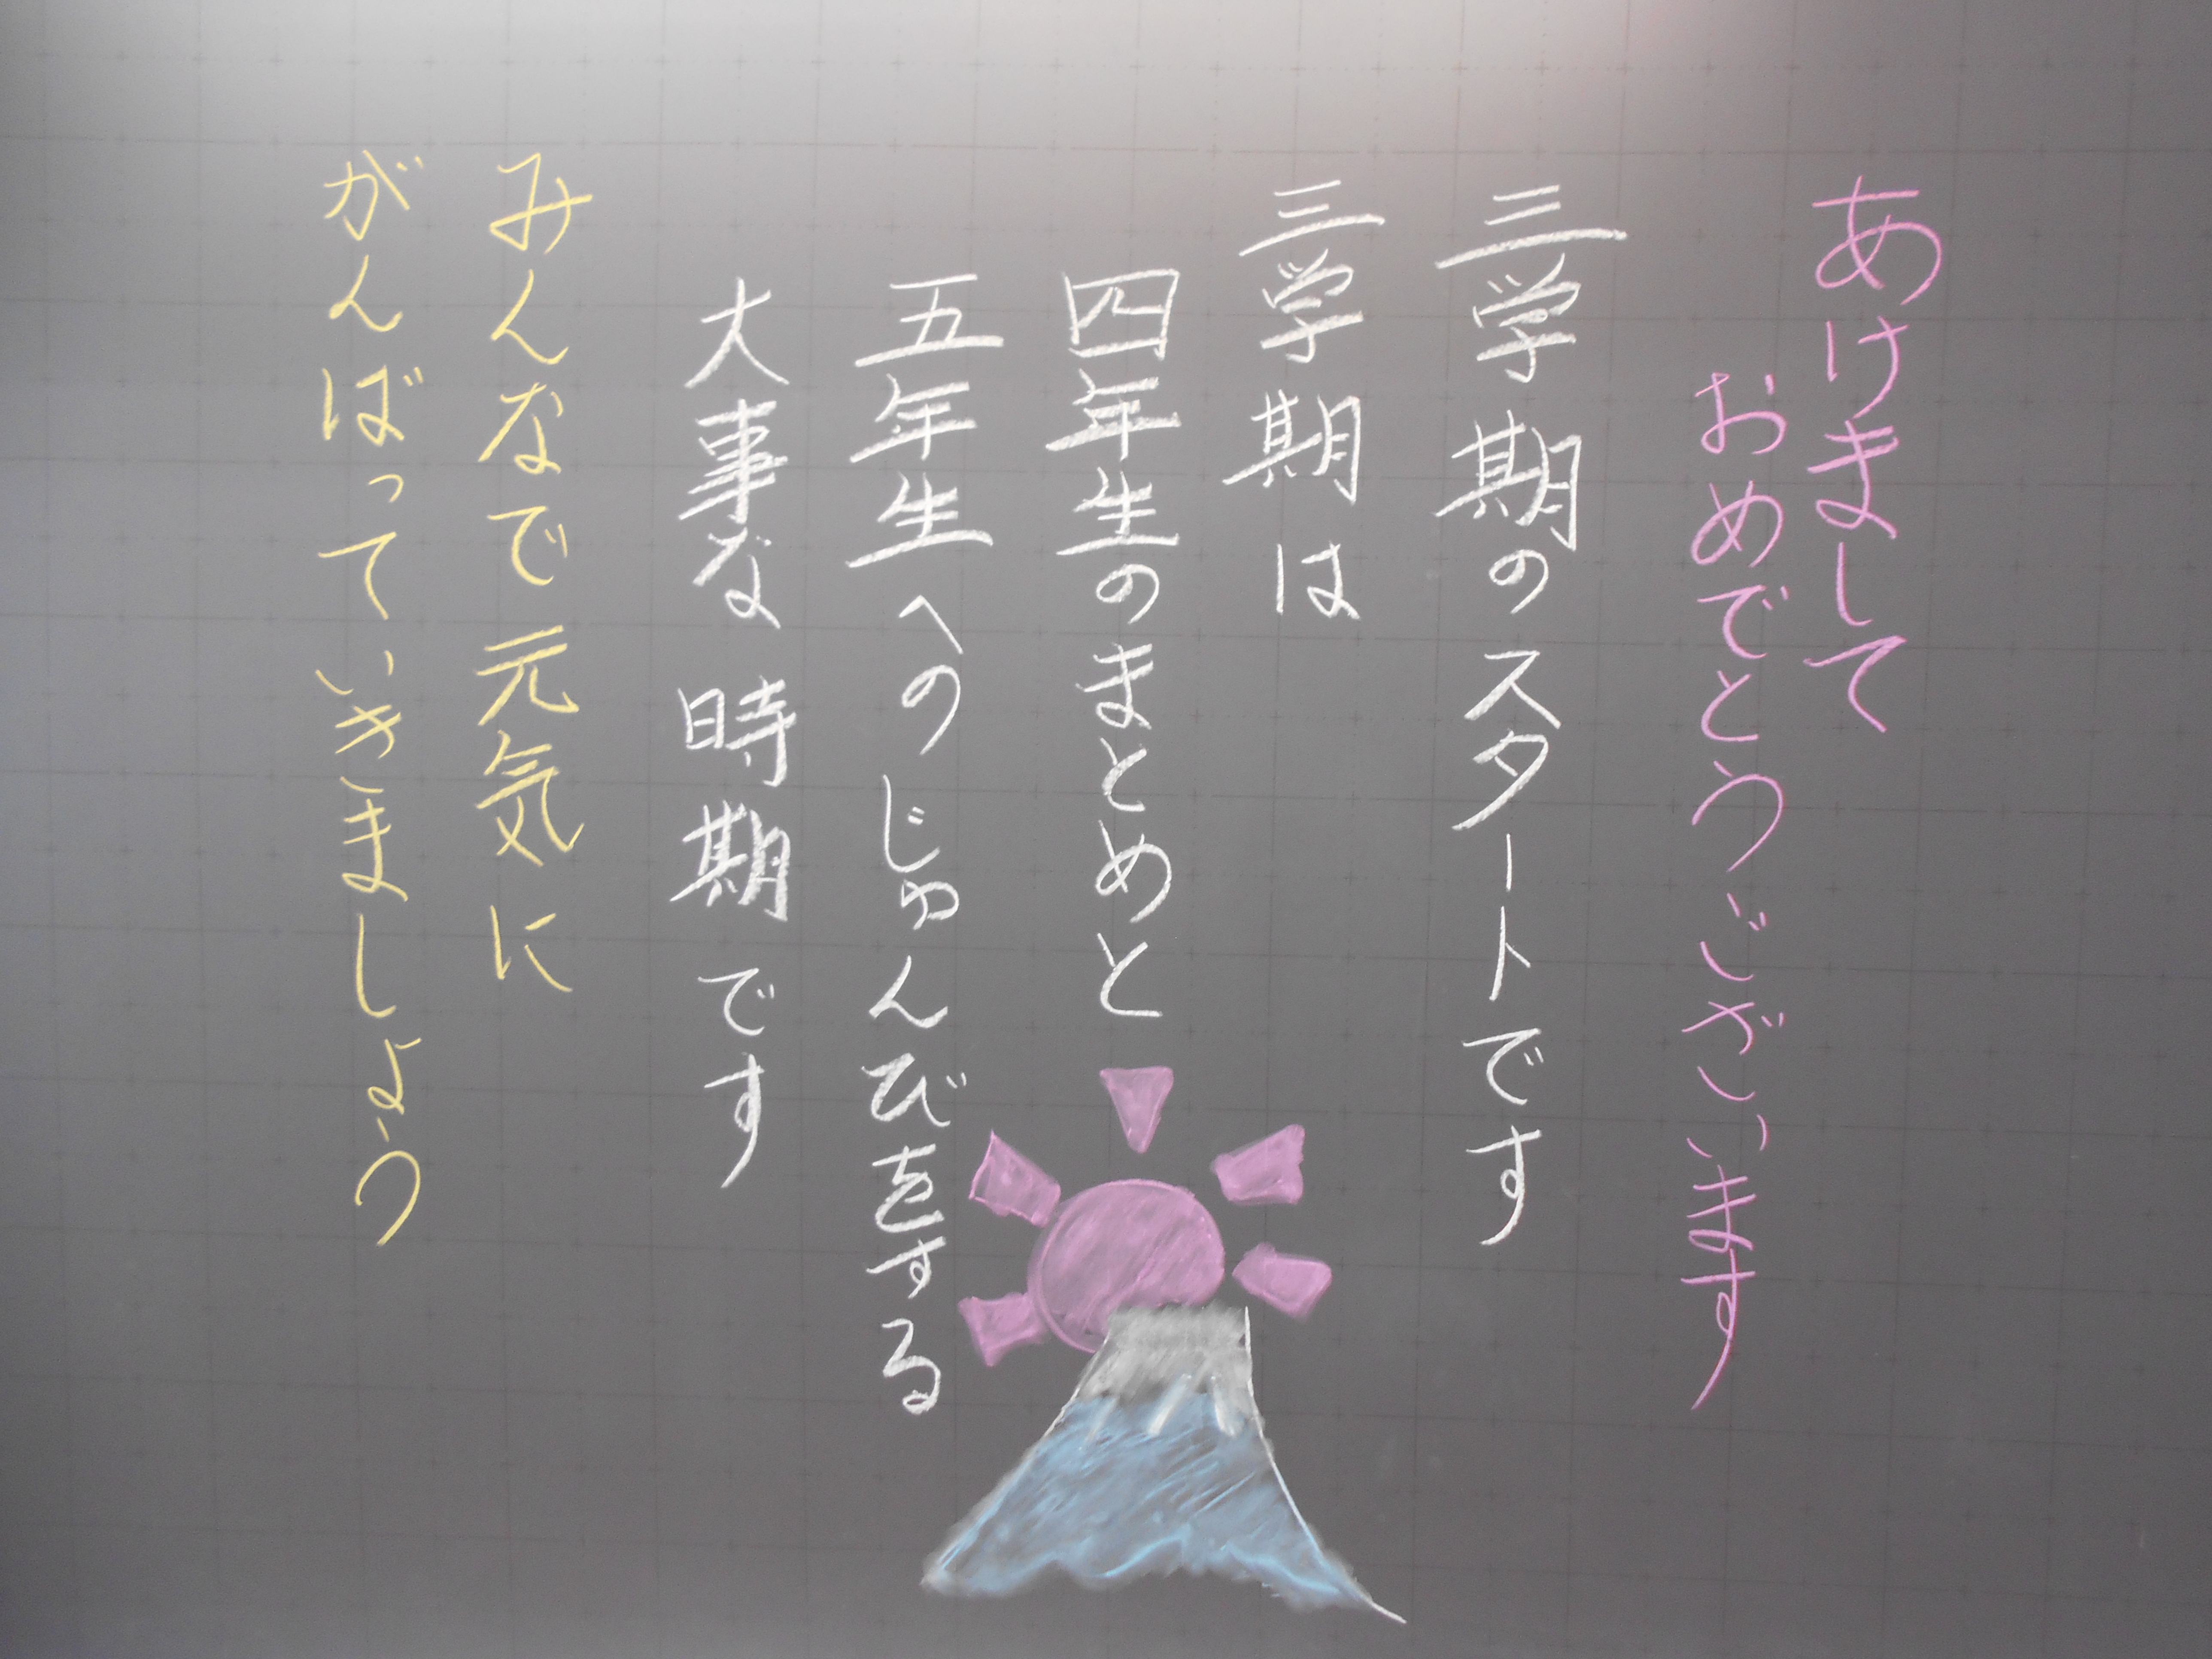 あけまして
おめでとうございます
三学期のスタートです
三学期は
四年生のまとめと
五年生へのじゅんびをする
大事な時期です
みんなで元気に
がんばっていきましょう